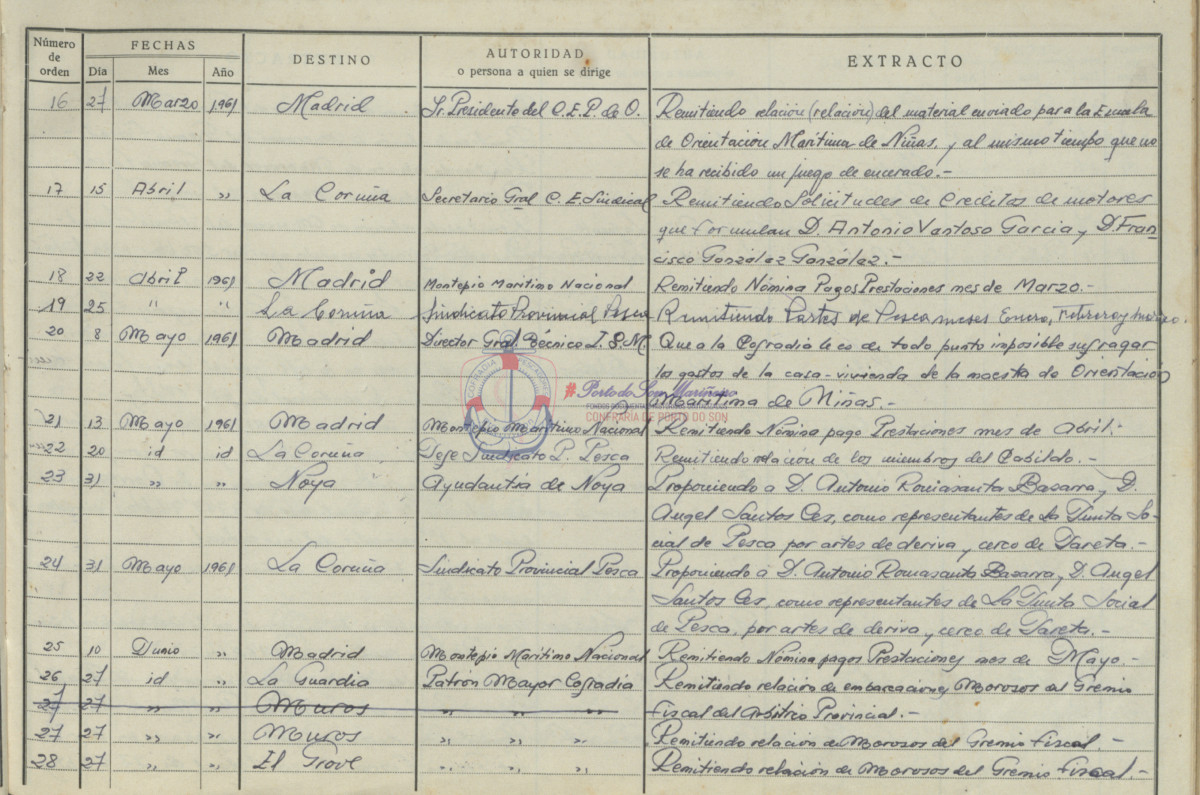 Número de orden FECHAS DESTINO AUTORIDAD o persona a quien se dirige EXTRACTO
Día Mes Año
16 27 Marzo 1961 Madrid Sr. Presidente del C.E.P. de O. Remitiendo relación (relación) del material enviado para la Escuela
de Orientación Marítima de Niñas, y al mismo tiempo que no
se ha recibido un juego de encerado.-
17 15 Abril " La Coruña Secretario Gral C. E. Sindical Remitiendo Solicitudes de Creditos de motores
que formulan D. Antonio Vantoso Garcia y D. Fran
cisco González González.-
18 22 Abril 1961 Madrid Montepio Maritimo Nacional Remitiendo Nómina Pagos Prestaciones mes de Marzo.-
19 25 " " La Coruña Sindicato Provincial Pesca Remitiendo Partes de Pesca meses Enero, Febrero y marzo.
20 8 Mayo 1961 Madrid Director Gral Técnico I.S.M. Que a la Cofradia le es de todo punto imposible sufragar
los gastos de la casa-vivienda de la maestra de Orientación
Maritima de Niñas.-
COFRADIA PESCADORES
#Porto do Son Mariñeiro
CONFRARÍA DE PORTO DO SON
21 13 Mayo 1961 Madrid Montepio Maritimo Nacional Remitiendo Nómina pago Prestaciones mes de Abril.-
22 20 id id La Coruña Jefe Sindicato P. Pesca Remitiendo relación de los miembros del Cabildo.-
23 31 " " Noya Ayudantía de Noya Proponiendo a D. Antonio Romasanta Basarra, y D.
Angel Santos Ces, como representantes de la Junta So-
cial de Pesca por artes de deriva y cerco de Jareta.-
24 31 Mayo 1961 La Coruña Sindicato Provincial Pesca Proponiendo a D. Antonio Romasanta Basarra, y D. Angel
Santos Ces, como representantes de La Junta Social
de Pesca, por artes de deriva y cerco de Jareta.-
25 10 Junio " Madrid Montepio Marítimo Nacional Remitiendo Nómina pagos Prestaciones mes de Mayo.-
26 27 id " La Guardia Patrón Mayor Cofradia Remitiendo relación de embarcaciones Morosos del Gremio
27 27 " " Muros " " " Fiscal del Arbitrio Provincial.-
27 27 " " Muros " " " Remitiendo relación de Morosos del Gremio Fiscal.-
28 27 " " El Grove " " " Remitiendo relación de Morosos del Gremio Fiscal.-